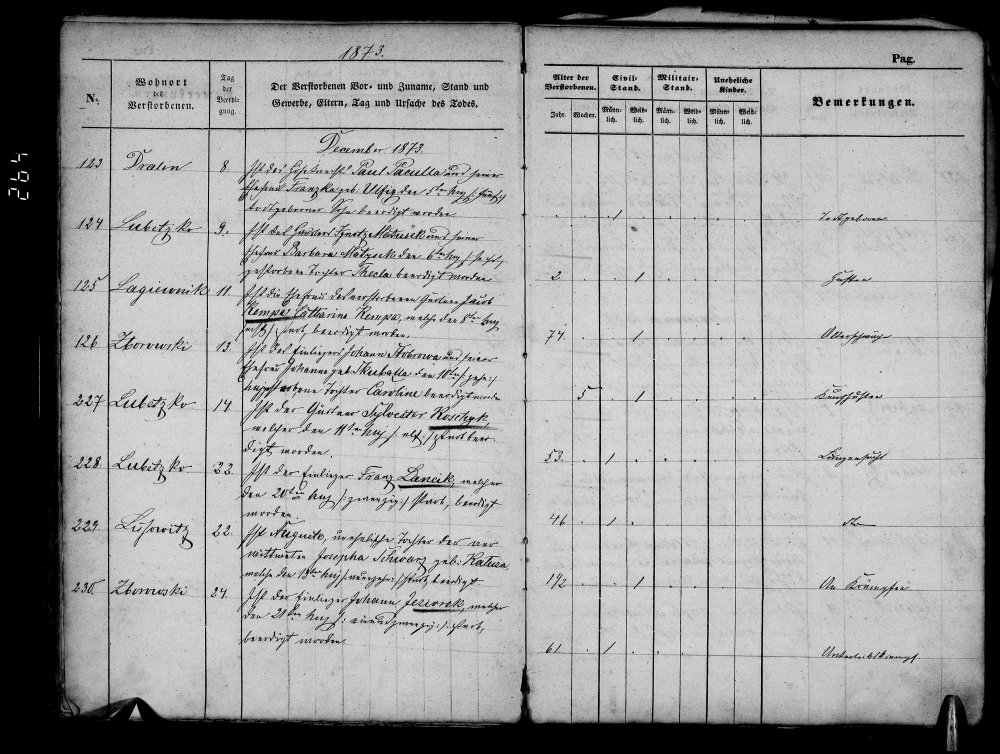 264
1873.
Pag.
N.
Wohnort
des
Verstorbenen.
Tag
der
Beerdi-
gung.
Der Verstorbenen Vor- und Zuname, Stand und
Gewerbe, Eltern, Tag und Ursache des Todes.
Alter der
Verstorbenen.
Jahr. Wochen.
Civil-
Stand.
Männ-
lich.
Weib-
lich.
Militair-
Stand.
Männ-
lich.
Weib-
lich.
Uneheliche
Kinder.
Männ-
lich.
Weib-
lich.
Bemerkungen.
December 1873.
123 Dralin 8. Ist des Paul Paculla und seiner
Ehefrau Franzka geb. den 5ten huj
todtgeborner Sohn beerdigt worden 1 Todtgeboren
124 Lubetzko 9. Ist des Ignatz und seiner
Ehefrau Barbara den 6ten huj
gestorbene Tochter Thecla beerdigt worden 2 1 Husten
125 Lagiewnik 11. Ist die Ehefrau des verstorbenen Jacob
Kempa, Catharina Kempa, welche den 8ten huj
starb, beerdigt worden. 74. 1 Altersschwäche
126 Zborowski 13. Ist des Einliegers Johann und seiner
Ehefrau Johanna geb. den 10ten
gestorbene Tochter Caroline beerdigt worden 5 1 Keuchhusten
227 Lubetzko 14. Ist der Sylvester Koschyk,
welcher den 11ten huj /: elf :/ starb beer-
digt worden. 53. 1 Lungensucht
228. Lubetzko 22. Ist der Einlieger Franz Lancik, welcher
den 20ten huj /: zwanzig :/ starb, beerdigt
worden. 46 1 do
229 Lissowitz 22. Ist Auguste, uneheliche Tochter der ver-
wittweten Josepha Schwarz geb. Katusa,
welche den huj starb, beerdigt 1 An Krämpfen
230. Zborowski 24. Ist der Einlieger Johann Jeziorek, welcher
den 21ten huj /: einundzwanzig :/ starb,
beerdigt worden 61 1 Unterleibskrampf